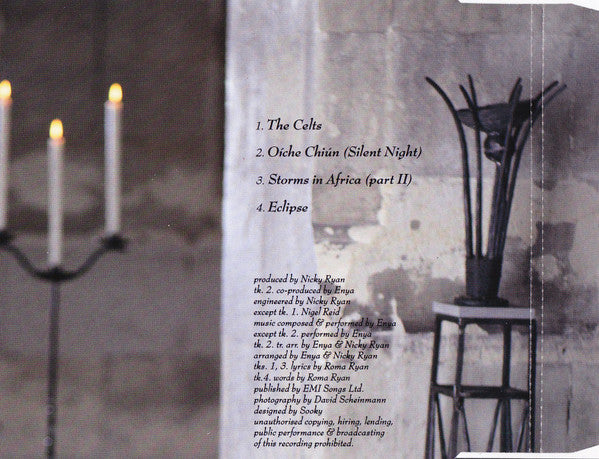 1. The Celts
2. Oíche Chiún (Silent Night)
3. Storms in Africa (part II)
4. Eclipse
produced by Nicky Ryan
tk. 2. co-produced by Enya
engineered by Nicky Ryan
except tk. 1. Nigel Reid
music composed & performed by Enya
except tk. 2. performed by Enya
tk. 2. tr. arr. by Enya & Nicky Ryan
arranged by Enya & Nicky Ryan
tks. 1, 3. lyrics by Roma Ryan
tk.4. words by Roma Ryan
published by EMI Songs Ltd.
photography by David Scheinmann
designed by Sooky
unauthorised copying, hiring, lending,
public performance & broadcasting
of this recording prohibited.